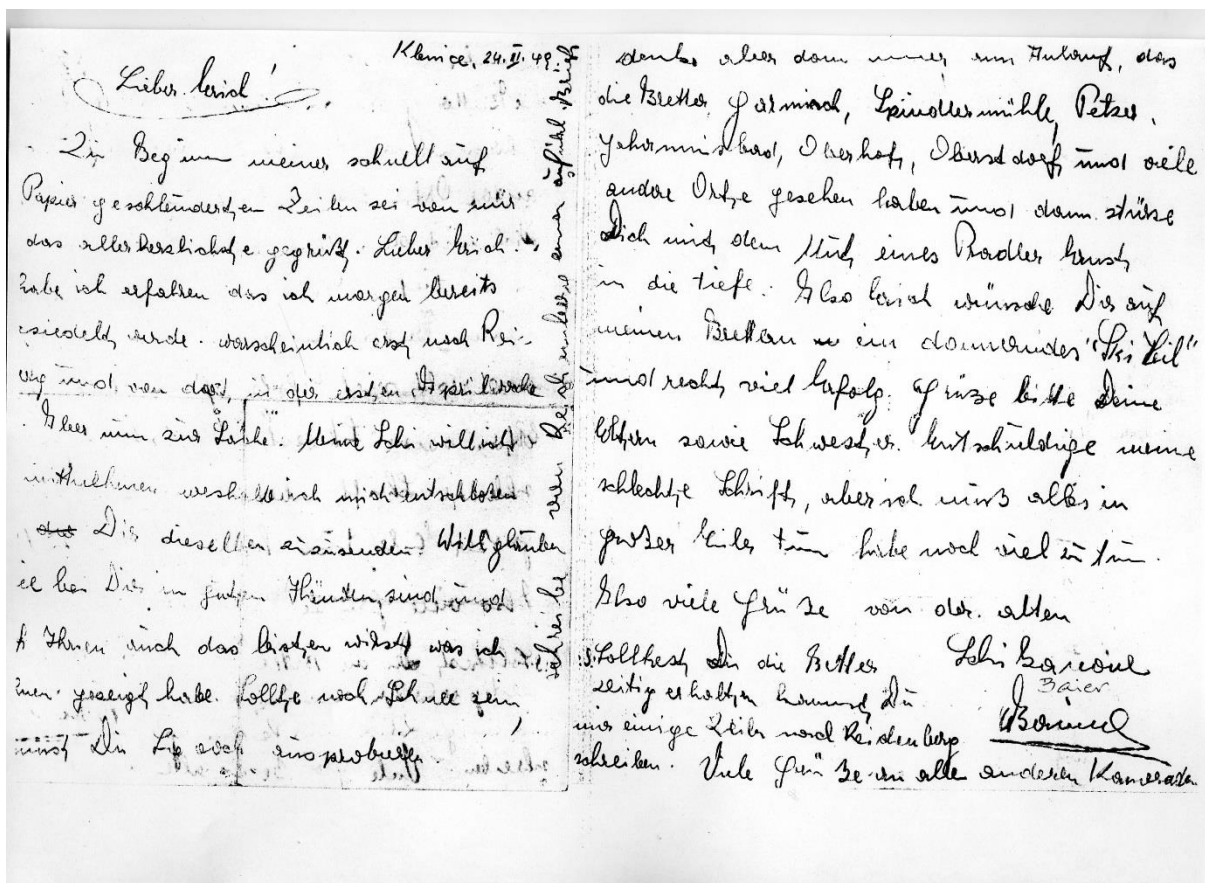 Klenice, 24.II.49.
Lieber Erich!
Zu Beginn meiner schnell auf
Papier geschleuderten Zeilen sei von mir
das allerherzlichste gegrüßt. Lieber Erich.
habe ich erfahren das ich morgen bereits
siedelt werde. warscheinlich erst nach Rei-
und von dort in die ersten
Aber nun zur Sache. Meine Schi will ich
mithnehmen weshalb ich mich entschloßen
Dir dieselben zuzusenden. Will glauben
bei Dir in guten Händen sind und
Ihnen auch das leisten wirst was ich
gezeigt habe. Sollte noch Schnee sein,
Du Sie noch ausprobieren
schreibe vom Reichenberg
denke aber dann immer am Anlauf, das
die Bretter Garmisch, Spindlermühle, Petzer,
Johannisbad, Oberhof, Oberstdorf und viele
andere Orte gesehen haben und dann stürze
Dich mit dem Mut eines Pradler Ernst
in die tiefe. Also Erich wünsche Dir auf
meinen Brettern ein donnerndes "Ski Heil"
und recht viel Erfolg. Grüße bitte Deine
Eltern sowie Schwester. Entschuldige meine
schlechte Schrift, aber ich muß alles in
großer Eile tun habe noch viel zu tun.
Also viele Grüße von der alten
Schi
Baier
:S. Solltest Du die Bretter
zeitig erhalten kannst Du
mir einige Zeilen nach Reichenberg
schreiben. Viele Grüße an alle anderen Kameraden